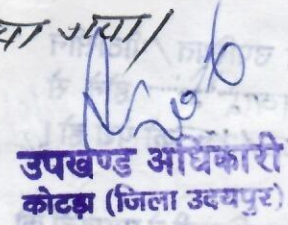 गया /
उपखण्ड अधिकारी
कोटड़ा (जिला उदयपुर)